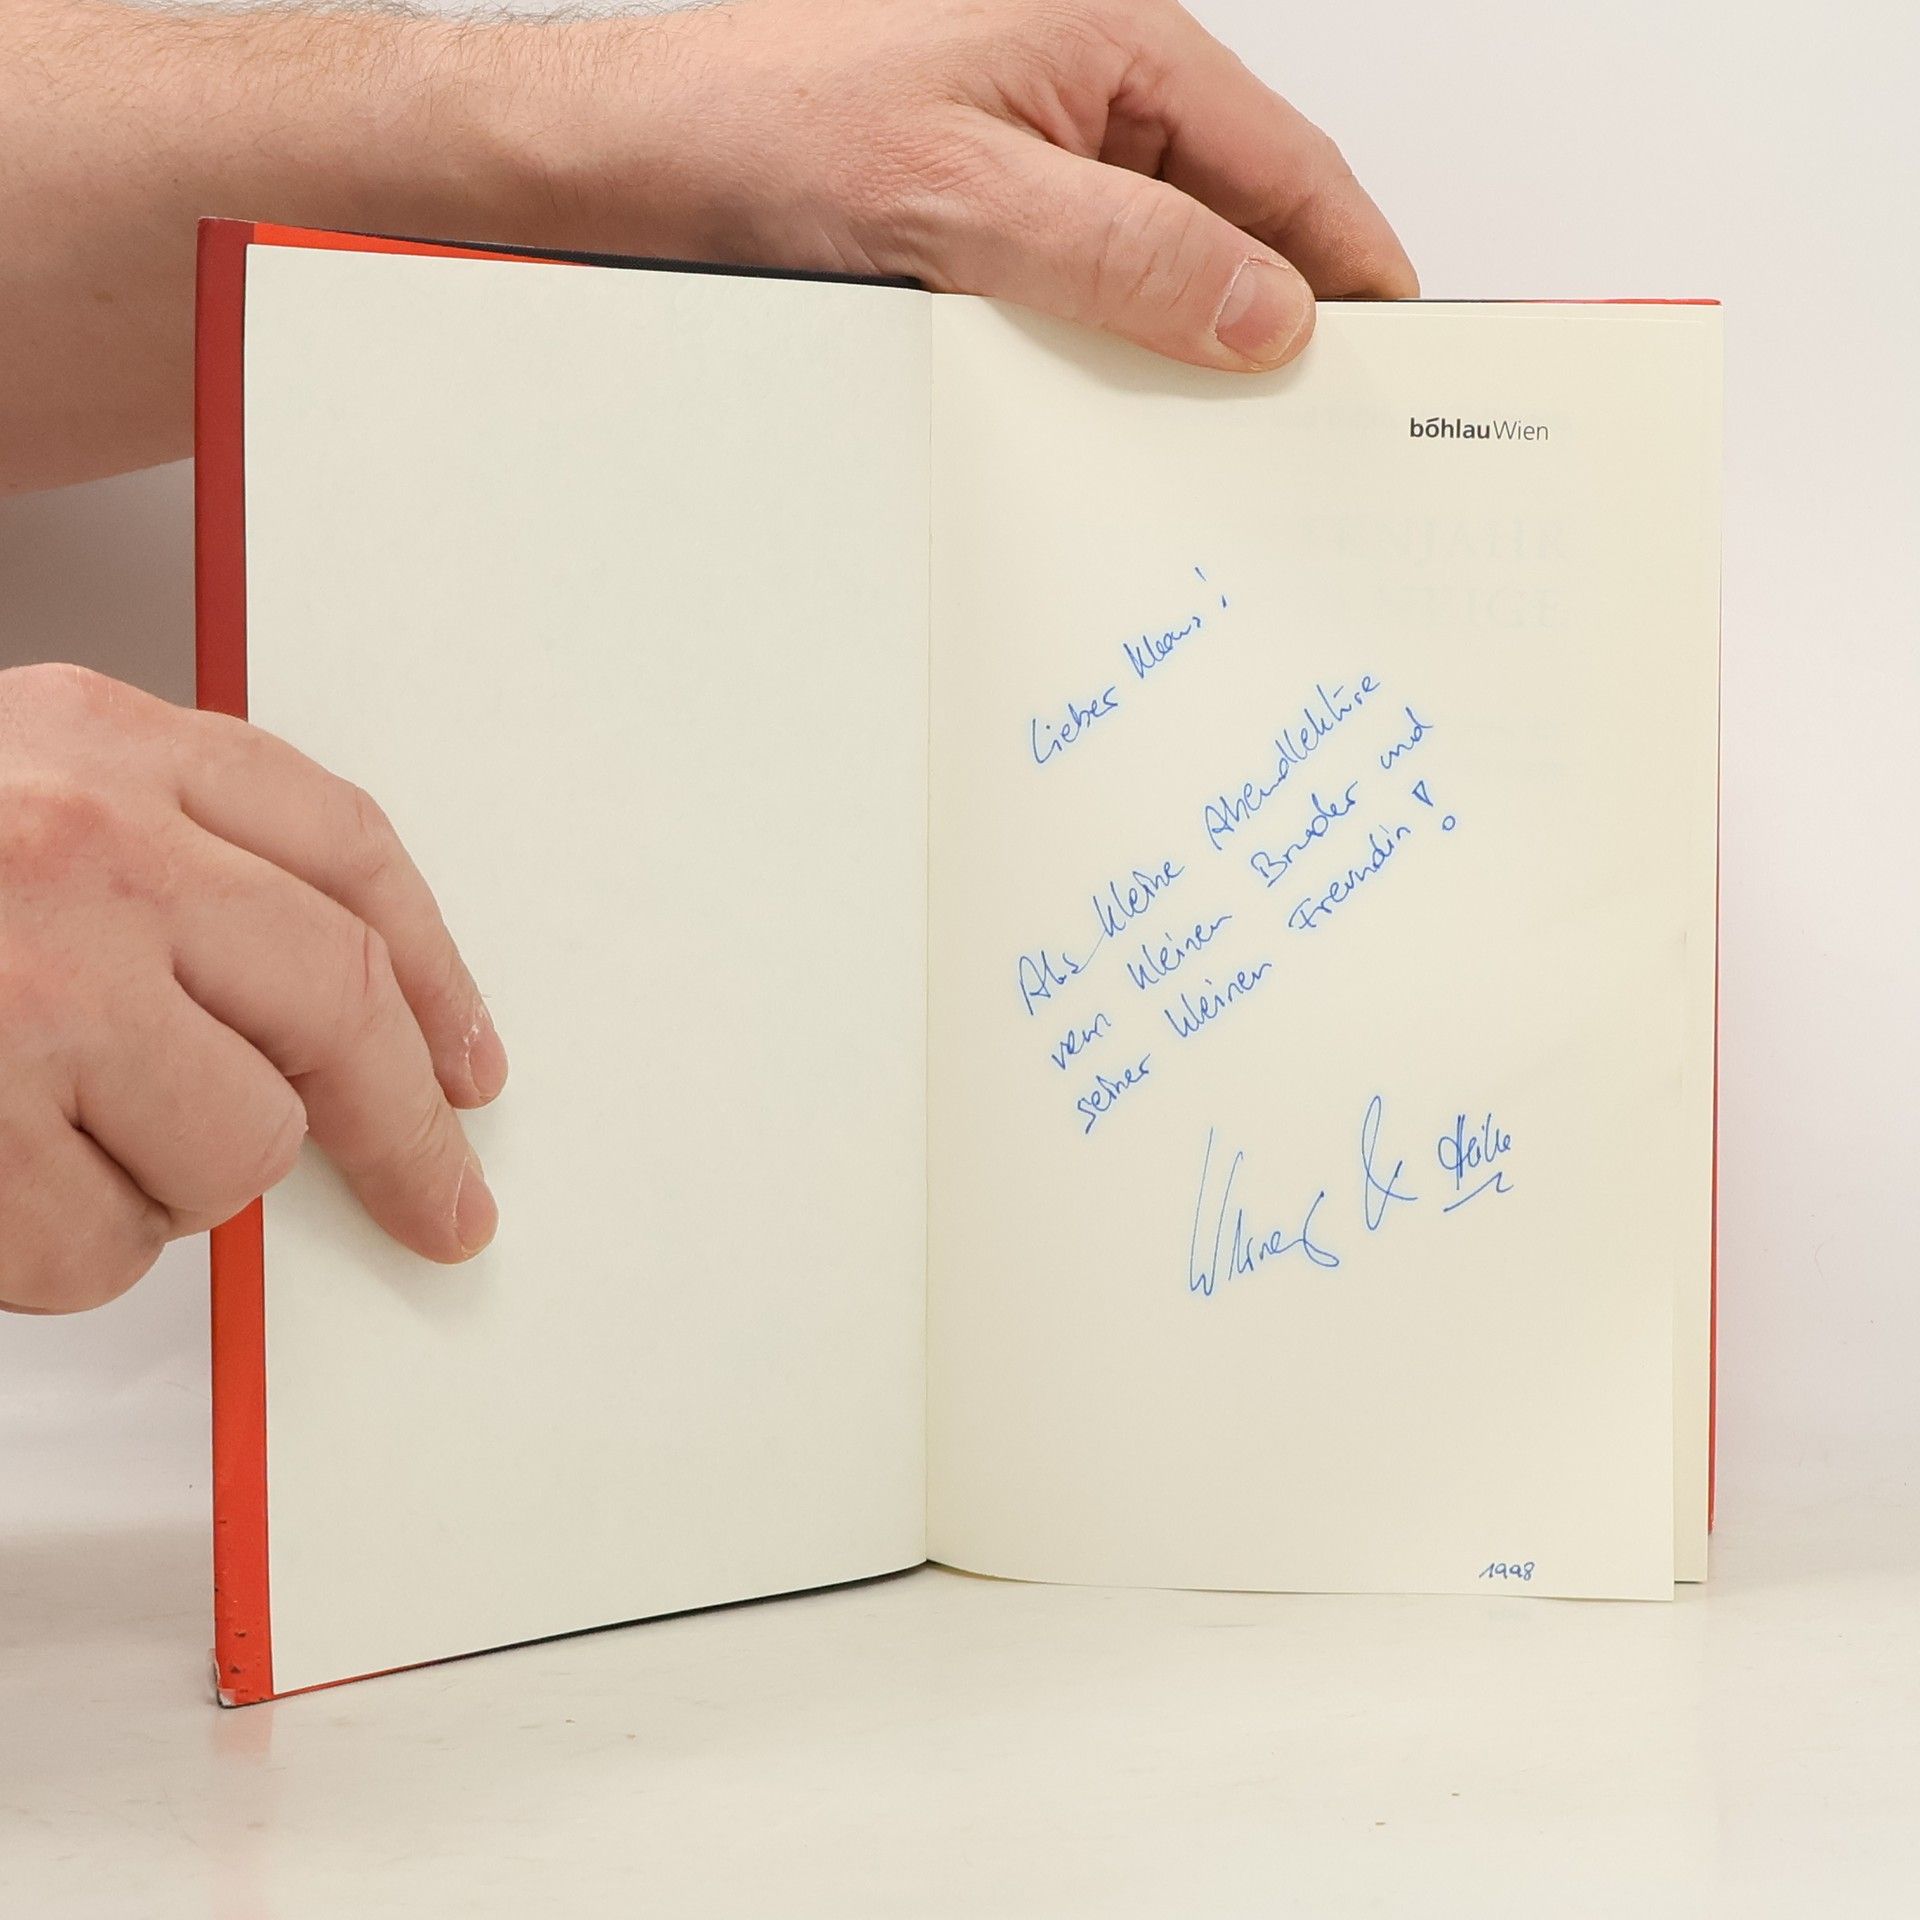 böhlauWien
Lieber Klaus!
Als kleine Abendlektüre
vom kleinen Bruder und
seiner kleinen Freundin!
& Heike
1998